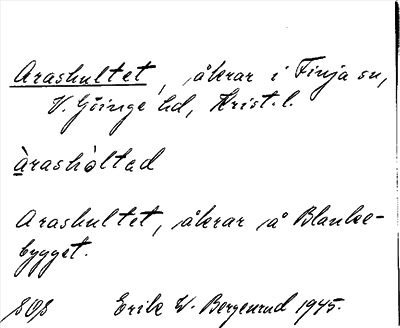 Arashultet, åkrar i Finja sn,
V. Göinge hd, Krist. l.
àrashòltad
Arashultet, åkrar å Blanke-
bygget.
Erik W. Bergenrud 1945.